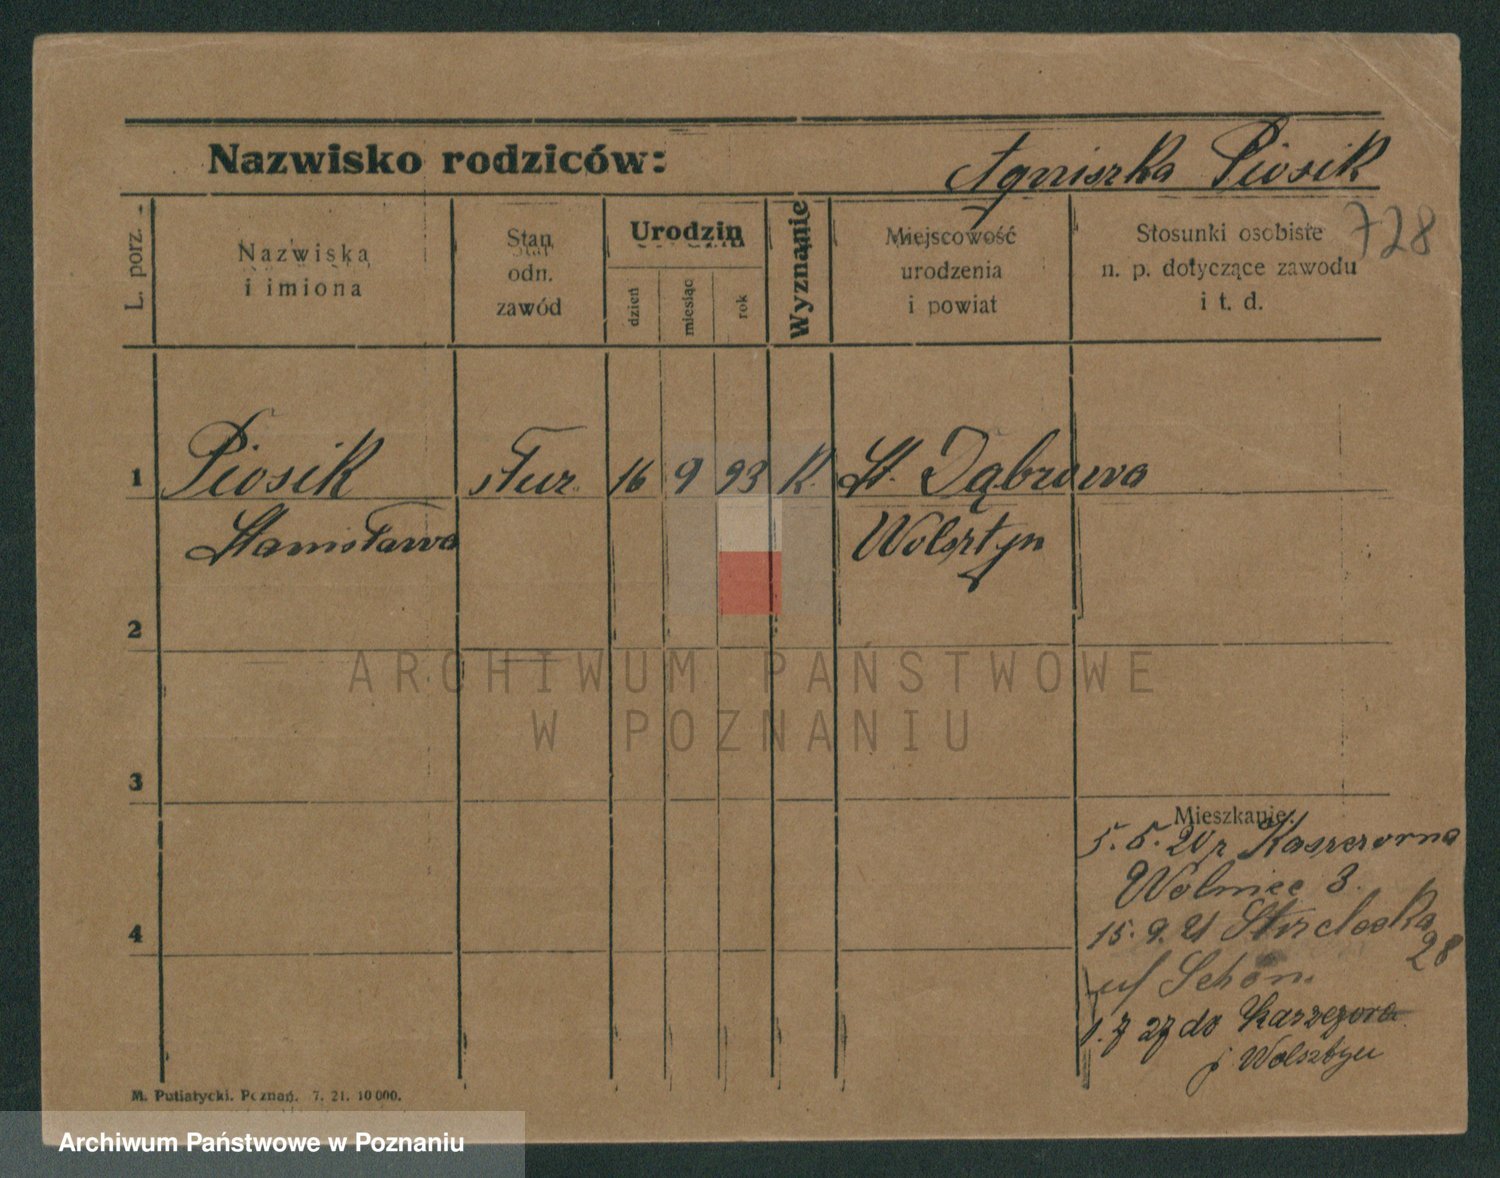 Nazwisko rodziców: Agniszka Piosik
728
L. porz.
Nazwiska
i imiona
Stan
odn.
zawód
Urodzin
dzień
miesiąc
rok
Wyznanie
Miejscowość
urodzenia
i powiat
Stosunki osobiste
n. p. dotyczące zawodu
i t. d.
1 Piosik służ. 16 9 93 K. St. Dąbrowa
Stanisława Wolsztyn
2
3
4
Mieszkanie:
5. 5. 20 z Kaszczorna
Wolnice 3.
15. 9. 21 Strzelecka
28
Schön.
1. 7 27 do Kaszczora
Wolsztyn
M. Putiatycki. Poznań. 7. 21. 10 000.
ARCHIWUM PAŃSTWOWE
W POZNANIU
Archiwum Państwowe w Poznaniu